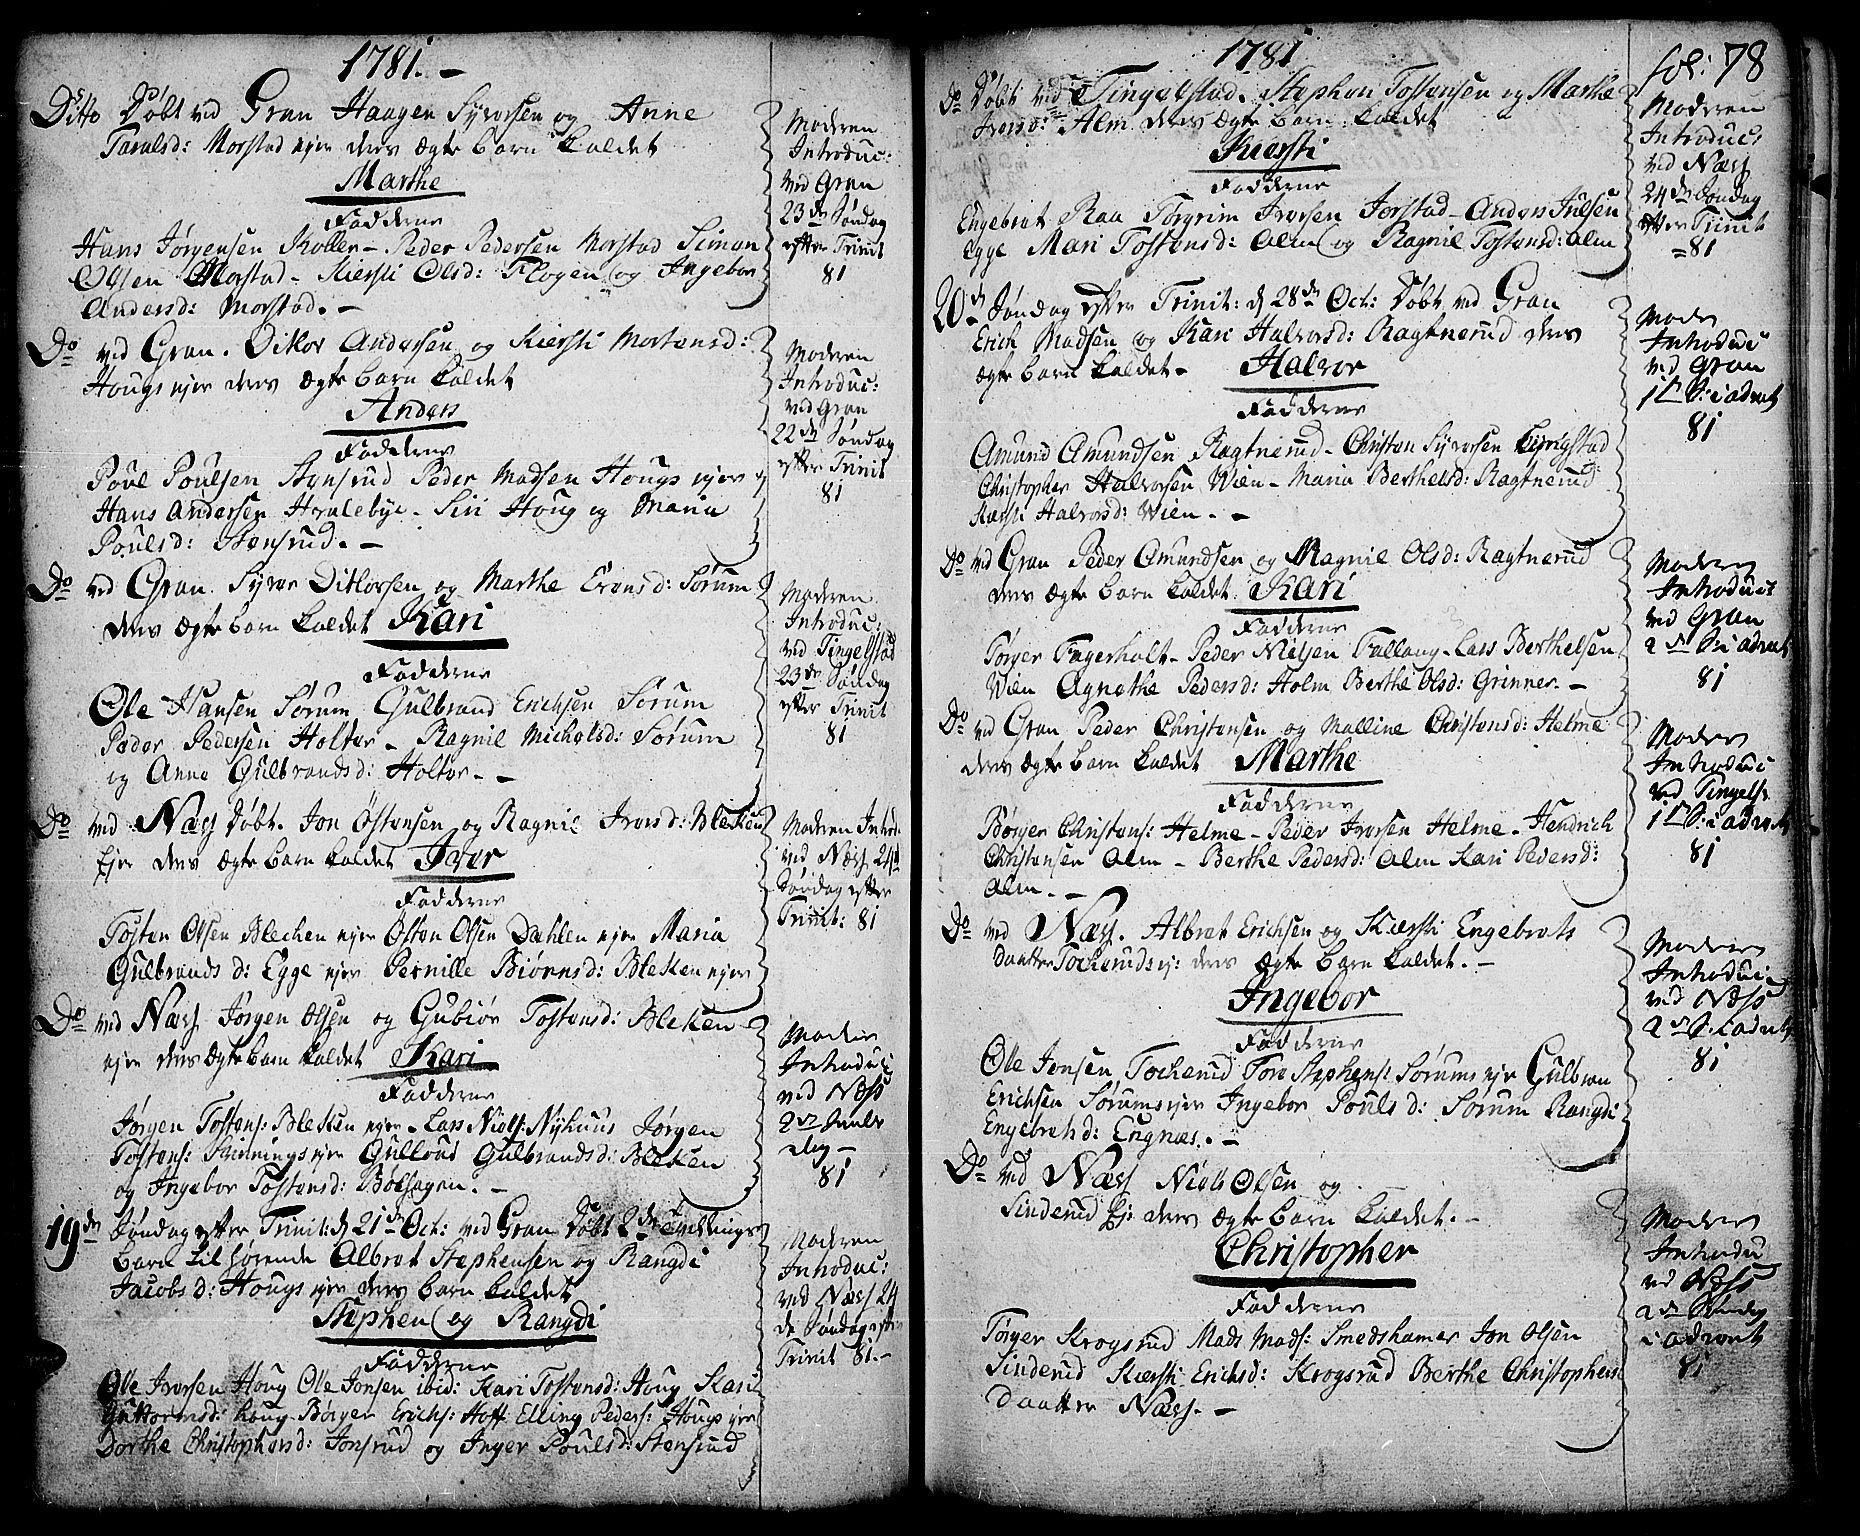 1781. -
Ditto Døbt ved Gran Haagen Syversen og Anne
Taralsd: Morstad ejer deres ægte barn kaldet
Marthe
Fadderne
Hans Jørgensen Koller - Peder Pedersen Morstad Simon
Olsen Morstad - Kiersti Olsd: Flogen og Ingebor
Andersd: Morstad. -
Moderen
Introduc:
ved Gran
23de Søndag
efter Trinit
81
Do ved Gran. Ditlov Andersen og Kiersti Mortensd:
Hougs ejer deres ægte barn kaldet
Anders
Fadderne
Povl Poulsen Stensrud Peder Madsen Hougs ejer
Hans Andersen Hvalebye - Siri Houg og Maria
Poulsd: Stensrud. -
Moderen
Introduc:
ved Gran
22de Søndag
efter Trinit
81
Do ved Gran. Syver Ditlovsen og Marthe Evensd: Sørum
deres ægte barn kaldet Kari
Fadderne
Ole Hansen Sørum Gulbrand Erichsen Sørum
Peder Pedersen Holter - Ragnil Michelsd: Sørum
og Anne Gulbrandsd: Holter. -
Moderen
Introduc:
ved Tingelstad
23de Søndag
efter Trinit
81
Do ved Næss Døbt. Jon Østensen og Ragnil Iversd: Bleken
Ejer deres ægte barn kaldet Iver
Fadderne
Tosten Olsen Blecken ejer Østen Olsen Dæhlen ejer Maria
Gulbrands d: Egge ejer Pernille Biørnsd: Bleken ejer
Moderen Introd:
ved Næss 24de
Søndag efter
Trinit: 81
Do ved Næss Jørgen Olsen og Gubiør Tostensd: Bleken
ejer deres ægte barn kaldet Kari
Fadderne
Jørgen Tostens: Bleken ejer - Lars Niels: Nyhuus Jørgen
Tostens: ejer Gulloug Gulbrandsd: Bleken
og Ingebor Tostensd: Bølhagen. -
Moder
Introduc
ved Næss
2de Juule
dag -
81
19de Søndag efter Trinit: d 21de Oct: ved Gran Døbt 2de Tvillings
barn til hørende Albret Stephensen og Rangdi
Jacobs d: Hougs ejer deres barn kaldet
Stephen og Rangdi
Fadderne
Ole Iversen Houg Ole Jonsen ibid: Kari Tostensd: Houg Kari
Guttormsd: Houg - Børger Erichs: Hoff Elling Peders: Hougs ejer
Dorthe Christophersd: Jonsrud og Inger Poulsd: Stensrud
Moderen
Introduc:
ved Næss 24
de Søndag efter
Trinit 81. -
1781
fol: 78
Do Døbt ved Tingelstad. Stephen Tostensen og Marthe
Iversd: Alm deres ægte barn kaldet
Kiersti
Fadderne
Engebret Raa Torgrim Iversen Jorstad - Anders Julsen
Egge Mari Tostensd: Alm og Ragnil Tostensd: Alm
Moderen
Introduc:
ved Næss
24de Søndag
efter Trinit
81
20de Søndag efter Trinit: d 28de Oct: Døbt ved Gran
Erich Madsen og Kari Halvorsd: Ragtnerud deres
ægte barn kaldet - Halvor
Fadderne
Amund Amundsen Ragtnerud - Christen Syversen
Christopher Halvorsen Wien - Maria Berthelsd: Ragtnerud
Kiersti Halvorsd: Wien. -
Moder
Introduc:
ved Gran
1ste S: i advent
81
Do ved Gran Peder Amundsen og Ragnil Olsd: Ragtnerud
deres ægte barn kaldet Kari
Fadderne
Torger Fagerholt - Peder Nielsen Fallang - Lars Berthelsen
Wien Agnethe Pedersd: Holm Berthe Olsd: Grinner. -
Moderen
Introduct
ved Gran
2den S: i advent
81
Do ved Gran Peder Christensen og Malline Christensd: Helme
deres ægte barn kaldet Marthe
Fadderne
Børger Christens: Helme - Peder Iversen Helme - Hendrich
Christensen Alm - Berthe Pedersd: Alm Kari Pedersd:
Alm. -
Moderen
Introduc
ved Tingelst
1ste S: i advent
81
Do ved Næss. Albret Erichsen og Kiersti Engebrets
Daatter Tockerudsej: deres ægte barn kaldet. -
Ingebor
Fadderne
Ole Jonsen Tockerud Tore Stephens: Sørums ejer Gulbran
Erichsen Sørumsejer Ingebor Pouls d: Sørum Rangdi
Engebretsd: Engnæs. -
Moderen
Introduc
ved Næss
2de S: i advent
81
Do ved Næss Niels Olsen og
Sinderud Ej: deres ægte barn kaldet. -
Christopher
Fadderne
Torger Krogsrud Mads Mads: Smedshamer Jon Olsen
Sinderud Kiersti Erichsd: Krogsrud Berthe Christophers
Daatter Næss. -
Moderen
Introduc
ved Næss
2de Søndag
i advent
81